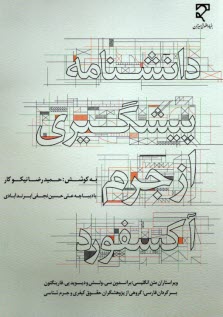 دانشنامه
پیشگیری
از جرم
آکسفورد
به کوشش: حمیدرضا نیکوکار
با دیباچه علی حسین نجفی ابرندآبادی
ویراستاران متن انگلیسی: براندون سی. ولش و دیوید پی. فارینگتون
برگردان فارسی: گروهی از پژوهشگران حقوق کیفری و جرم شناسی